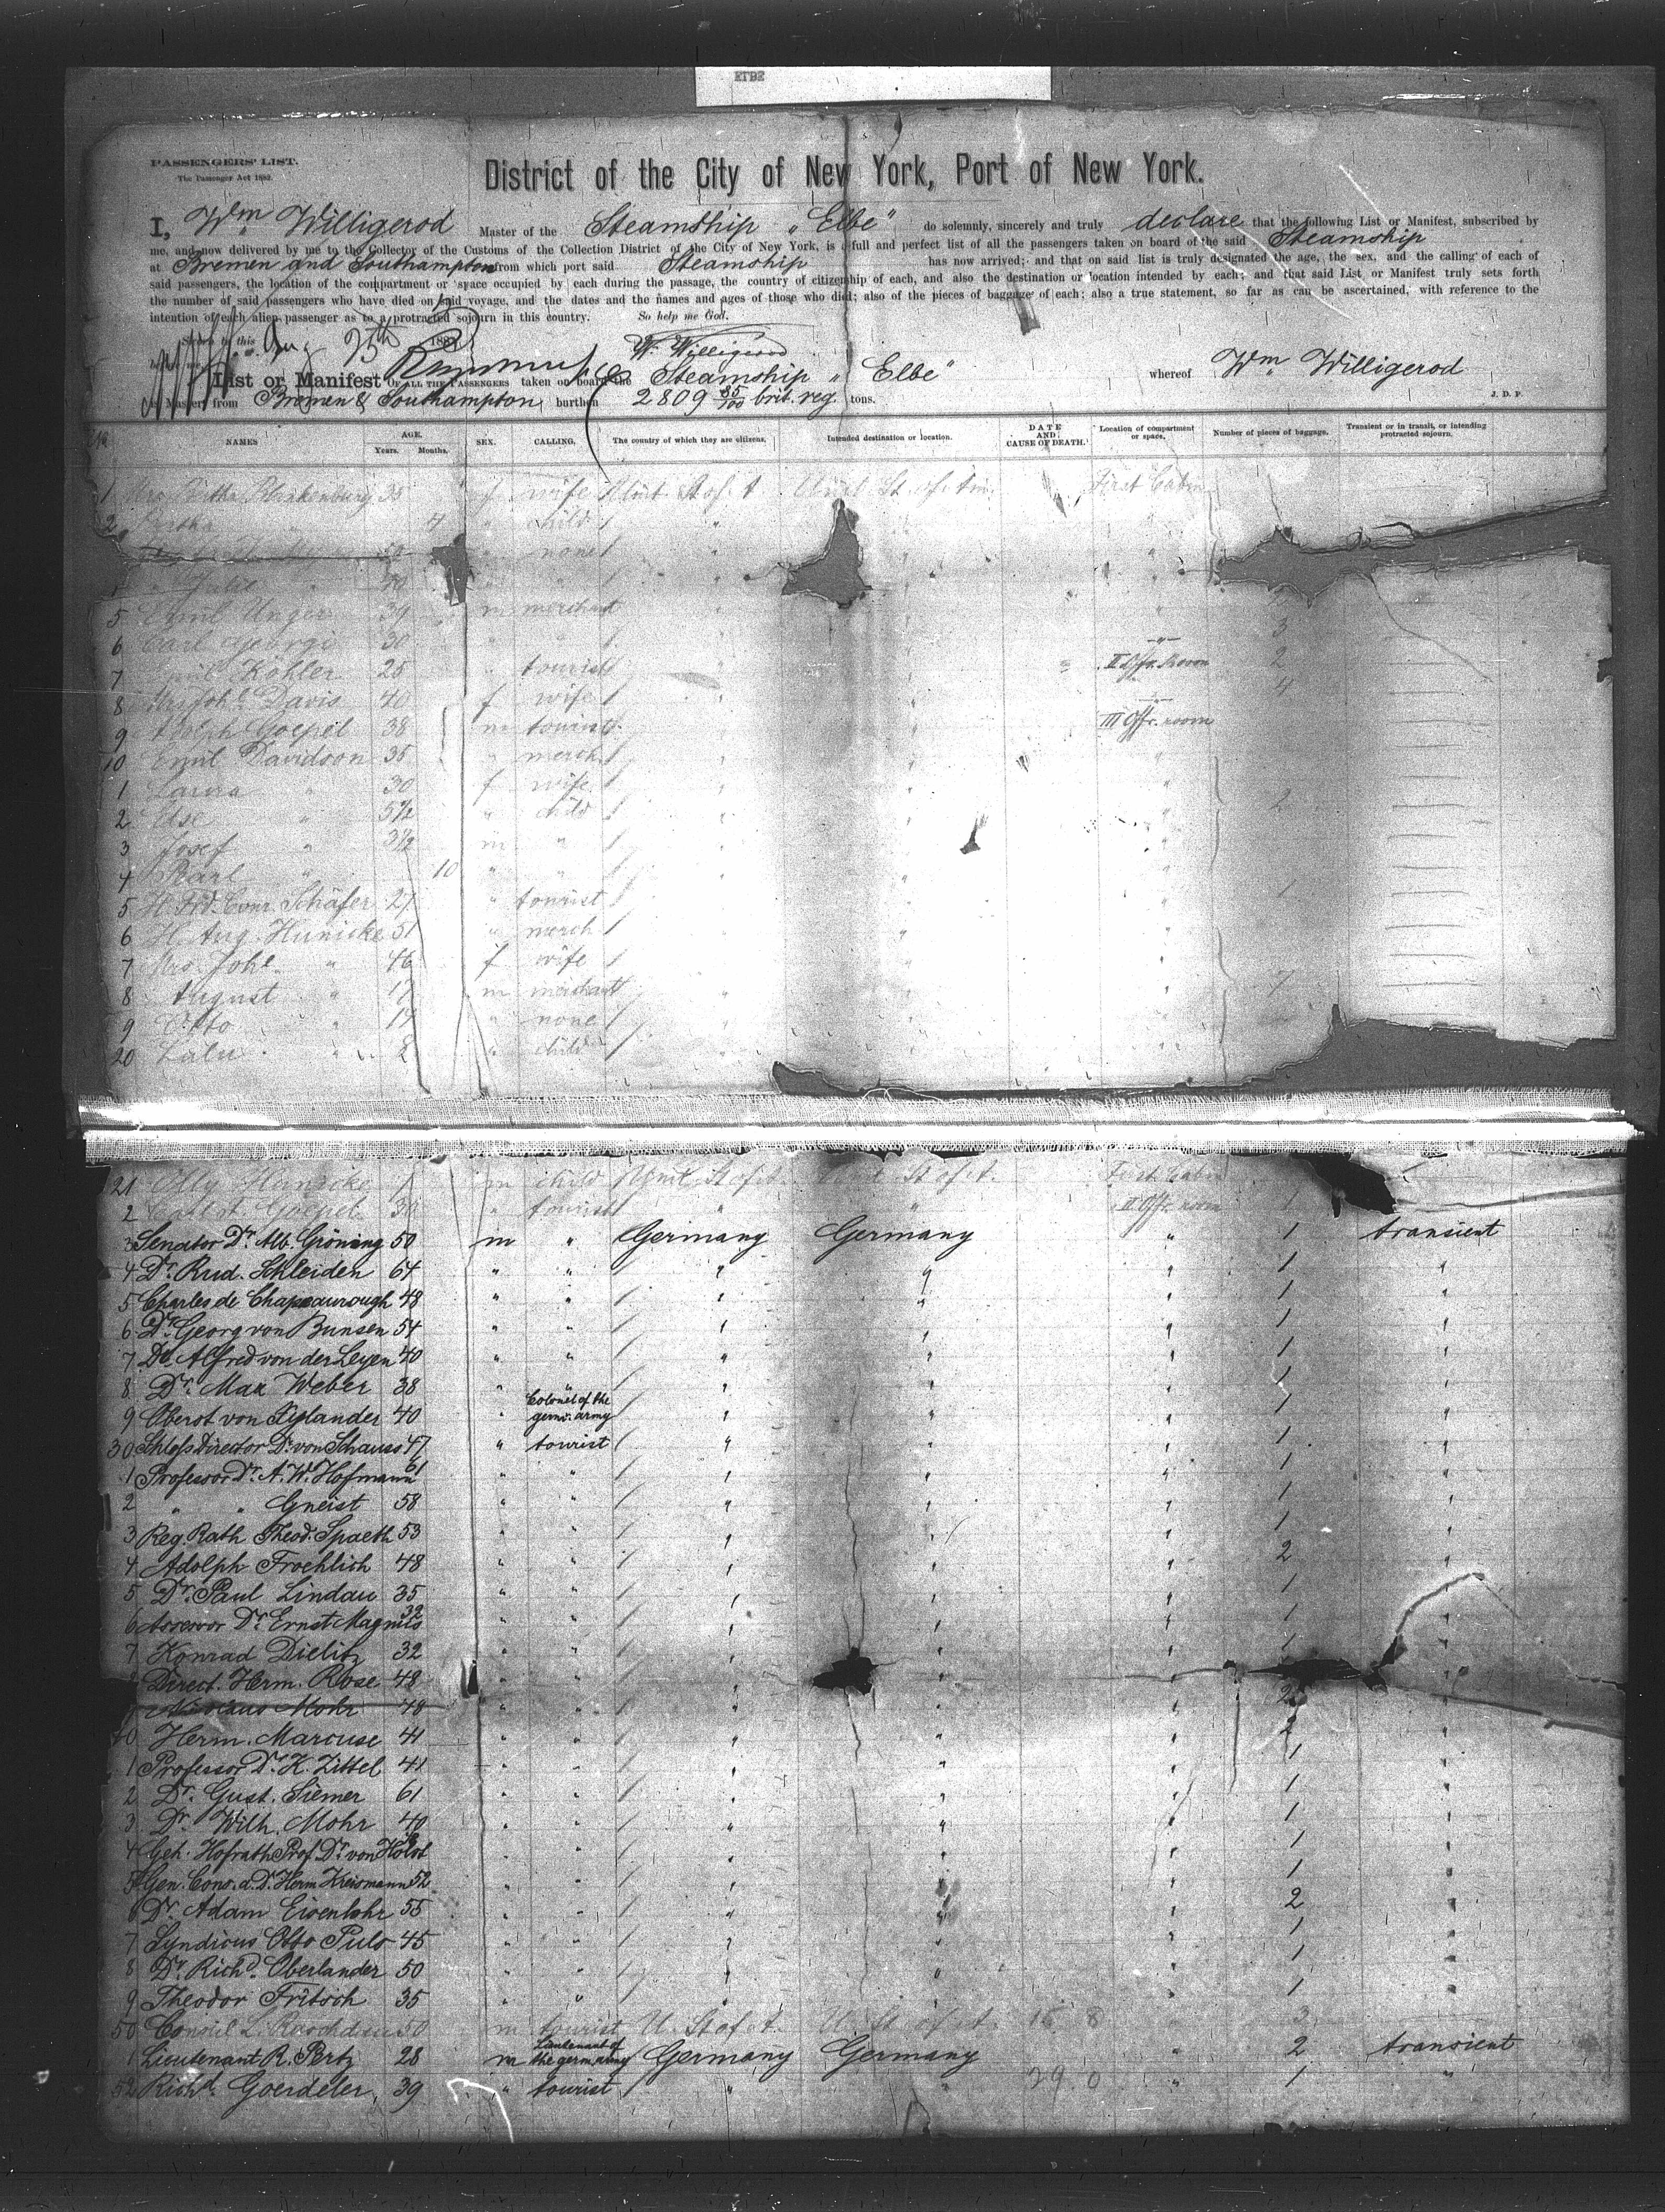 ETBE
PASSENGERS' LIST.
The Passenger Act 1882.
District of the City of New York, Port of New York.
I, Wm Willigerod Master of the Steamship „Elbe" do solemnly, sincerely and truly declare that the following List or Manifest, subscribed by
me, and now delivered by me to the Collector of the Customs of the Collection District of the City of New York, is a full and perfect list of all the passengers taken on board of the said Steamship
at Bremen and Southampton from which port said Steamship has now arrived; and that on said list is truly designated the age, the sex, and the calling of each of
said passengers, the location of the compartment or space occupied by each during the passage, the country of citizenship of each, and also the destination or location intended by each; and that said List or Manifest truly sets forth
the number of said passengers who have died on said voyage, and the dates and the names and ages of those who died; also of the pieces of baggage of each; also a true statement, so far as can be ascertained, with reference to the
intention of each alien passenger as to a protracted sojourn in this country. So help me God.
Sworn to this Aug 25th 188
W. Willigerod
List or Manifest OF ALL THE PASSENGERS taken on board the Steamship „Elbe" whereof Wm Willigerod
is Master, from Bremen & Southampton, burthen 2809 85/100 brit. reg. tons. J. D. P.
NAMES AGE. Years. Months. SEX. CALLING. The country of which they are citizens. Intended destination or location. DATE AND CAUSE OF DEATH. Location of compartment or space. Number of pieces of baggage. Transient or in transit, or intending protracted sojourn.
1 Mrs Bertha Blankenburg 35 f wife Unit. St. of. t. First Cabin
2 Bertha " 4 " child / "
none / "
40 " " / "
5 Emil Unger 39 m merchant "
6 Carl Georgi 30 " " 3
7 Emil Köhler 25 " tourist / II Offr. Room 2
8 Mrs Joh. Davis 40 f wife / 4
9 Adolph Goepel 38 m tourist III Offr. room
10 Emil Davidson 35 " merch. / "
1 Laura " 30 f wife /
2 Else " 5½ " child / " 2
3 Josef " 3½ m " /
4 Karl " 10 " " /
5 H. Frd. Conr. Schäfer 27 " tourist / 1
6 H. Aug. Hunicke 51 " merch /
7 Mrs. Joh. " 46 f wife /
8 August " 17 m merchant / 7
9 Otto " 14 " none /
20 Lalu " " child
21 Elly Hunicke m child Unit. St. of. t. Unit. St. of. t. First Cabin
2 Goepel 30 " tourist " II Offr. room 1
3 Senator Dr. Alb. Gröning 50 m " Germany Germany " 1 transient
4 Dr. Rud. Schleiden 64 " " / " " " 1 "
5 Charles de Chapeaurough 48 " " / " " " 1 "
6 Dr. Georg von Bunsen 54 " " / " " " 1 "
7 Dr. Alfred von der Leyen 40 " " / " " " 1 "
8 Dr. Max Weber 38 " " / " " " 1 "
9 Oberst von Xylander 40 " Colonel of the germ. army / " " " 1 "
30 Schloss Director Dr. von Schauss 47 " tourist / " " " 1 "
1 Professor Dr. A. W. Hofmann 61 " " / " " " 1 "
2 " " Gneist 58 " " / " " " 1 "
3 Reg. Rath Theod. Spaeth 53 " " / " " " 1 "
4 Adolph Froehlich 48 " " / " " " 2 "
5 Dr. Paul Lindau 35 " " / " " " 1 "
6 Assessor Dr. Ernst Magnus 32 " " / " " " 1 "
7 Konrad Dielitz 32 " " / " " " 1 "
Direct. Herm. Rose 48 " " / " " " 2 "
Nicolaus Mohr 48 " " / " " "
40 Herm. Marcuse 41 " " / " " " 2 "
1 Professor Dr. K. Zittel 41 " " / " " " 1 "
2 Dr. Gust. Siemer 61 " " / " " " 1 "
3 Dr. Wilh. Mohr 40 " " / " " " 1 "
4 Geh. Hofrath Prof. Dr. von Holst " " / " " " 1 "
5 Gen. Cons. a. D. Herm Kreismann 52 " " / " " " 1 "
6 Dr. Adam Eisenlohr 55 " " / " " " 2 "
7 Syndicus Otto Puls 45 " " / " " " 1 "
8 Dr. Richd. Oberlander 50 " " / " " " 1 "
9 Theodor Fritsch 35 " " / " " 1 "
50 Consul L. 50 m tourist U. St. of. t. U. St. of. t. 16 8 3
1 Lieutenant R. Pertz 28 m Lieutenant of the germ. army Germany Germany " 2 transient
52 Richd. Goerdeler 39 " tourist / " " 29 0 " 1 "